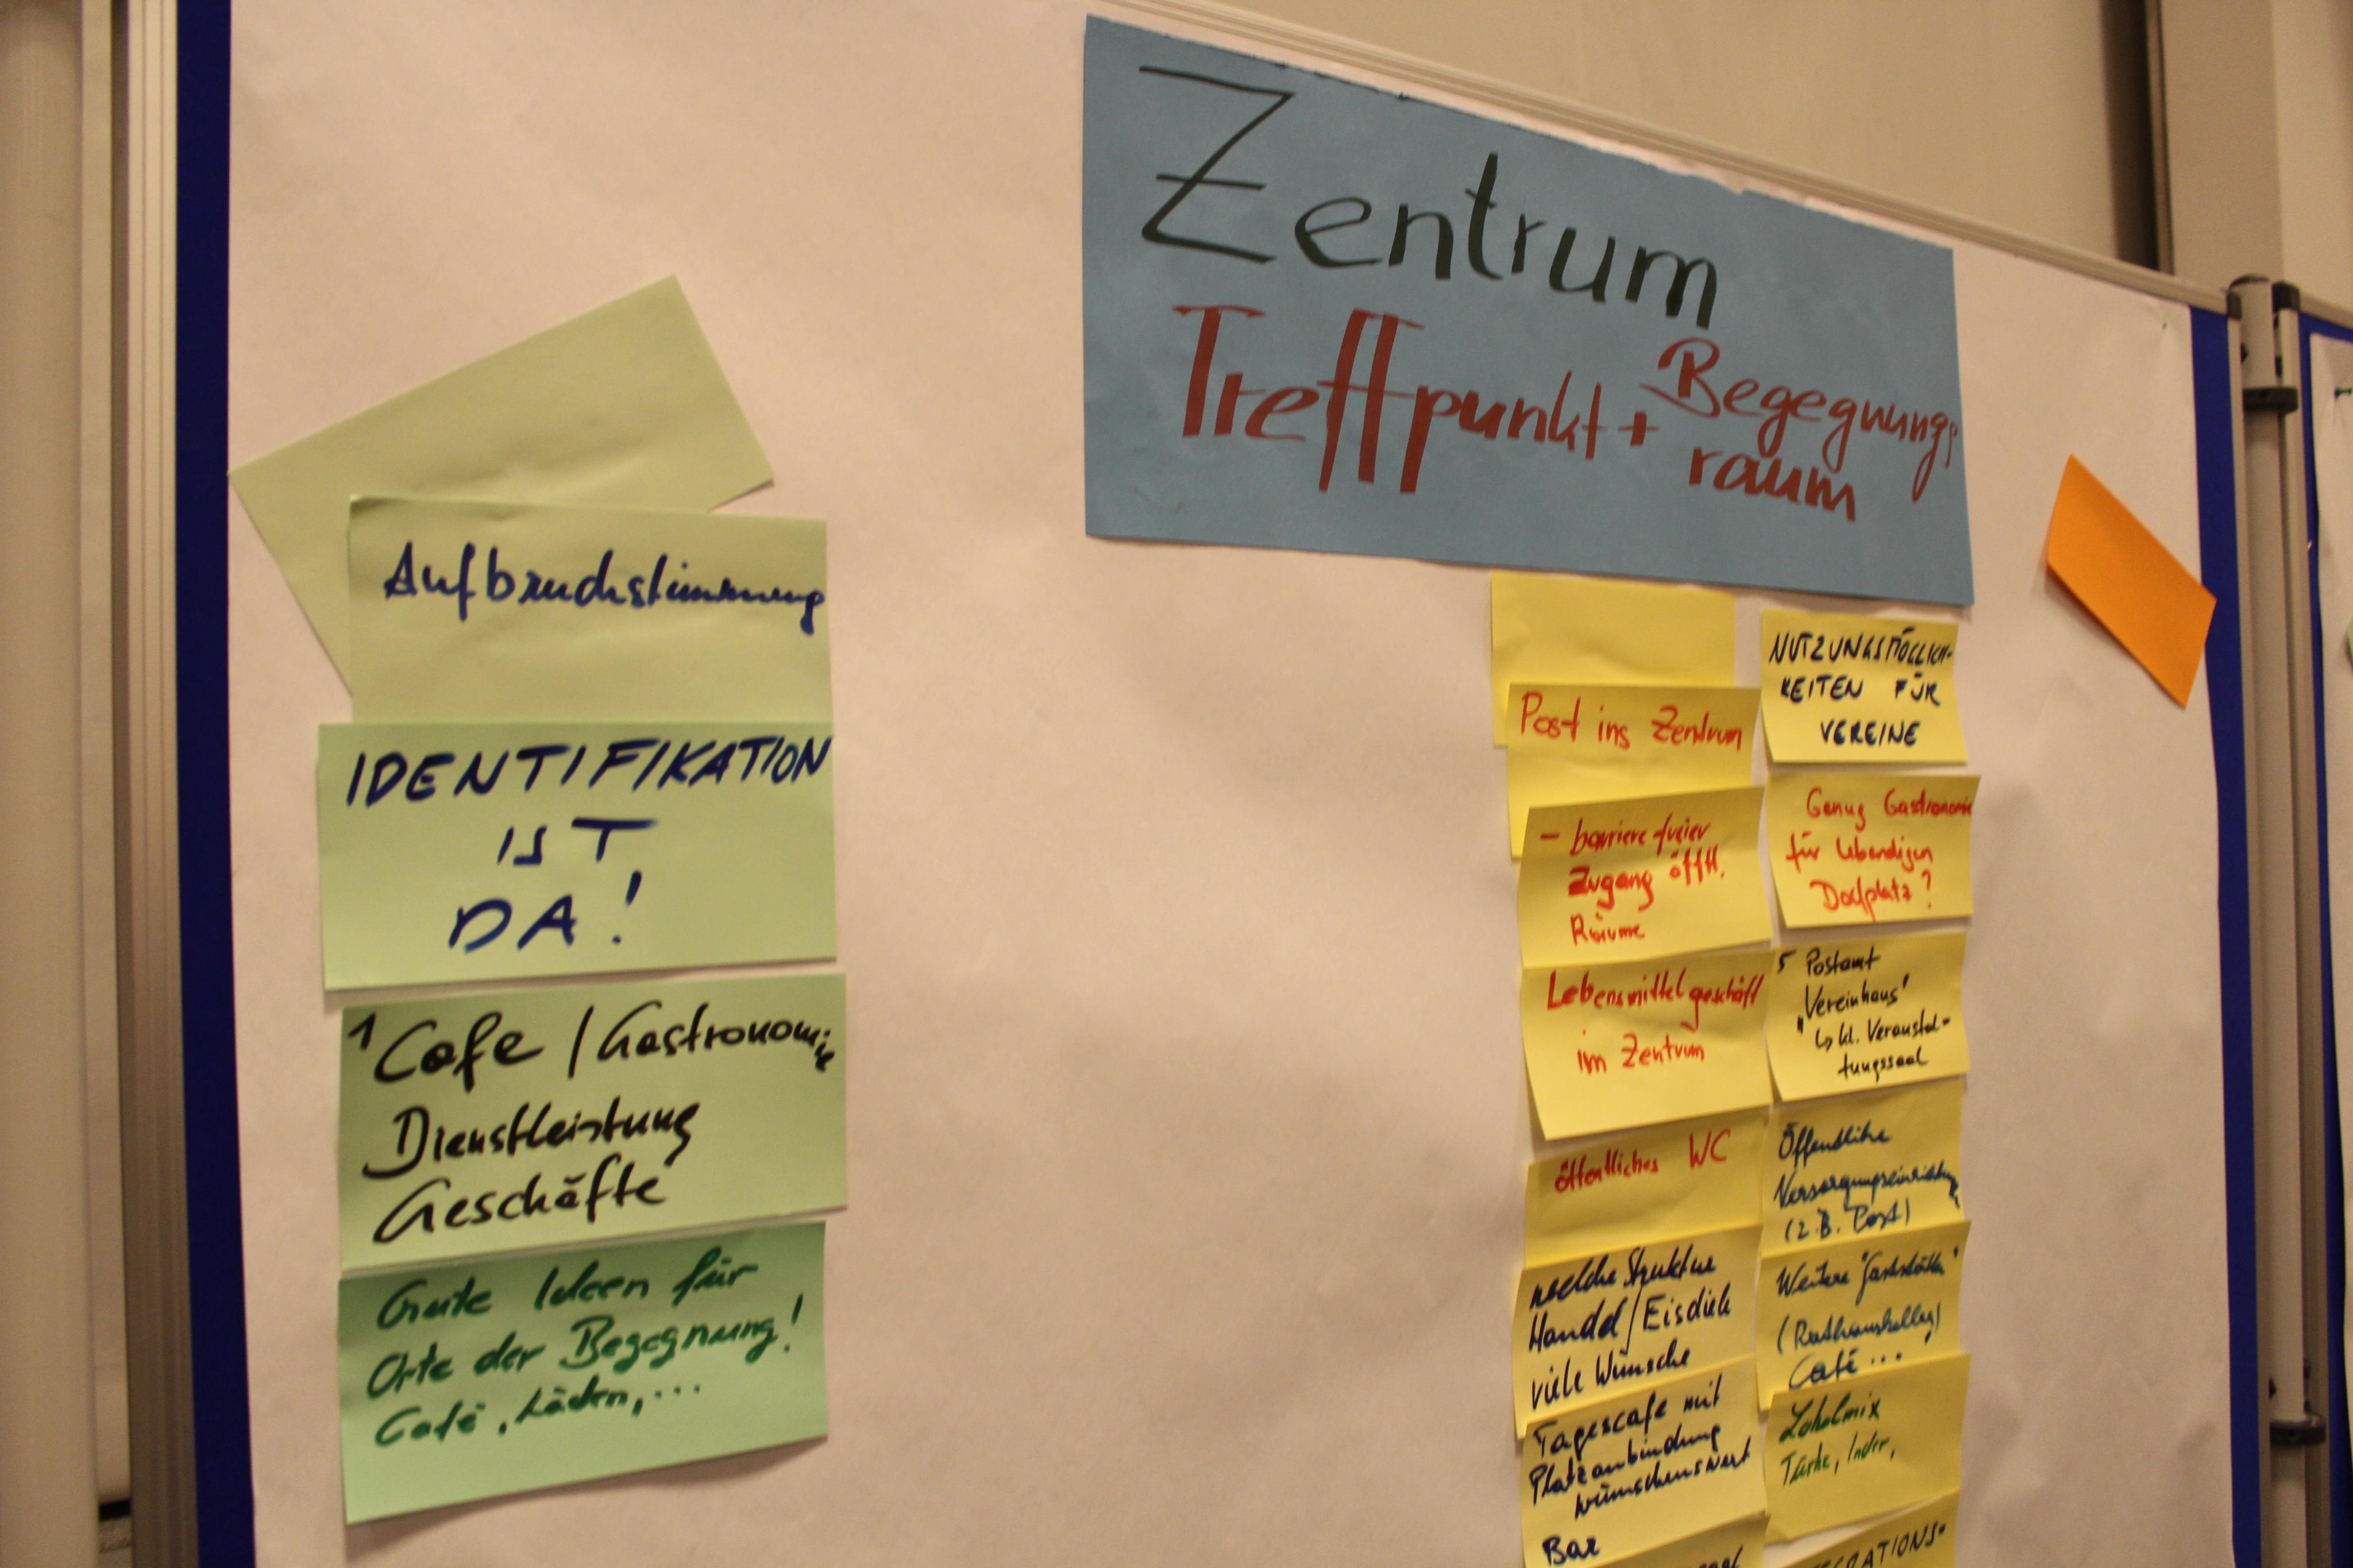 Zentrum
Treffpunkt + Begegnungs
raum
Aufbruchstimmung
IDENTIFIKATION
IST
DA!
1 Cafe / Gastronomie
Dienstleistung
Geschäfte
Gute Ideen für
Orte der Begegnung!
Café, Läden, ...
Post ins Zentrum
- barriere freier
Zugang öfftl.
Räume
Lebensmittelgeschäft
im Zentrum
öffentliches WC
welche Struktur
Handel / Eisdiele
viele Wünsche
Tagescafe mit
Platzanbindung
wünschenswert
Bar
NUTZUNGSMÖGLICH-
KEITEN FÜR
VEREINE
Genug Gastronomie
für lebendigen
Dorfplatz?
5 Postamt
"Vereinhaus"
↳ kl. Veranstal-
tungssaal
Öffentliche
Versorgungseinrichtung
(z.B. Post)
Weitere "Gaststätten"
(Rathauskeller)
Café ...
Lokalmix
Türke, Inder,